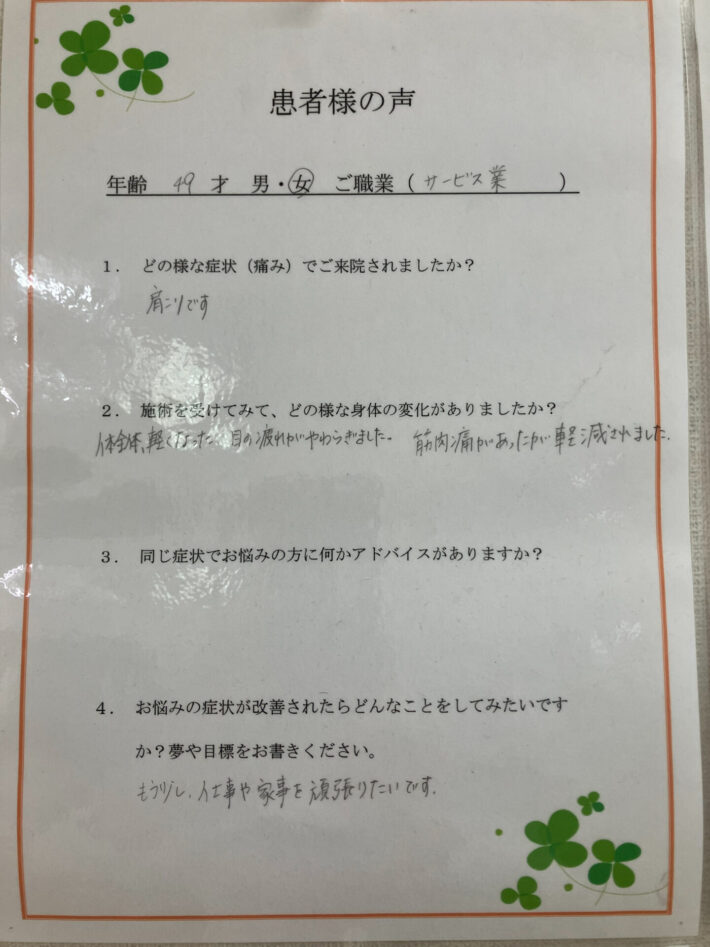 患者様の声
年齢 49 才 男・女 ご職業（ サービス業 ）
1． どの様な症状（痛み）でご来院されましたか？
肩こりです
2． 施術を受けてみて、どの様な身体の変化がありましたか？
体全体、軽くなった、目の疲れがやわらぎました。 筋肉痛があったが軽減されました.
3． 同じ症状でお悩みの方に何かアドバイスがありますか？
4． お悩みの症状が改善されたらどんなことをしてみたいです
か？夢や目標をお書きください。
もう少し、仕事や家事を頑張りたいです.